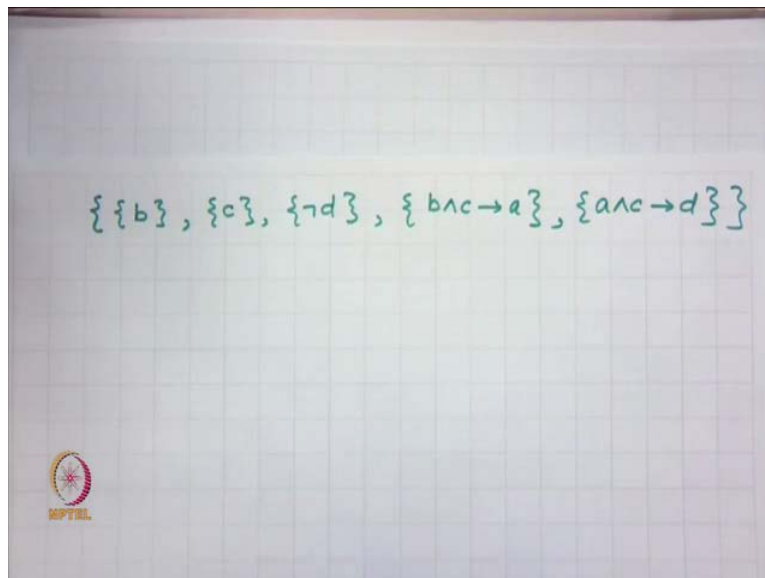 { {b} , {c}, {¬d} , { b∧c→a} , {a∧c→d} }
NPTEL